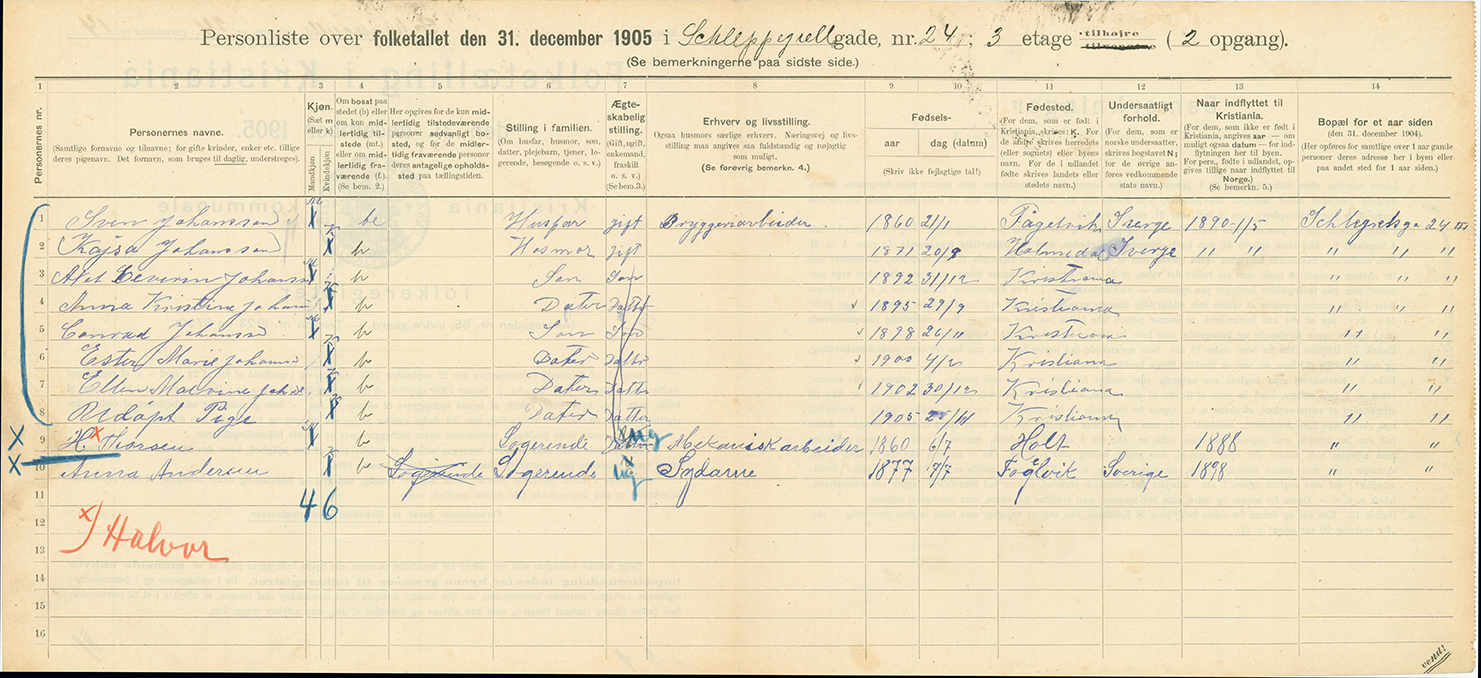 Personliste over folketallet den 31. december 1905 i Schleppegrellgade, nr. 24, 3 etage tilhøjre tilvenstre (2 opgang).
(Se bemerkningerne paa sidste side.)
1 2 3 4 5 6 7 8 9 10 11 12 13 14
Personernes nr.
Personernes navne.
(Samtlige fornavne og tilnavne; for gifte kvinder, enker etc. tillige deres pigenavn. Det fornavn, som bruges til daglig, understreges).
Kjøn.
(Sæt m eller k)
Mandkjøn
Kvindekjøn
Om bosat paa stedet (b) eller om kun midlertidig tilstede (mt.) eller om midlertidig fraværende (f.)
(Se bem. 2.)
Her opgives for de kun midlertidig tilstedeværende personer sedvanligt bosted, og for de midlertidig fraværende personer deres antagelige opholdssted paa tællingstiden.
Stilling i familien.
(Om husfar, husmor, søn, datter, plejebarn, tjener, logerende, besøgende o. s. v.)
Ægteskabelig stilling.
(Gift, ugift, enkemand, fraskilt o. s. v.)
(Se bem.3.)
Erhverv og livsstilling.
Ogsaa husmors særlige erhverv. Næringsvej og livsstilling maa angives saa fuldstændig og nøjagtig som muligt.
(Se forøvrig bemerkn. 4.)
Fødsels-
aar
dag (datum)
(Skriv ikke fejlagtige tal!)
Fødested.
(For dem, som er født i Kristiania, skrives: K. For de andre skrives herredets (eller sognets) eller byens navn. For de i udlandet fødte skrives landets eller stedets navn.)
Undersaatligt forhold.
(For dem, som er norske undersaatter, skrives bogstavet N; for de øvrige anføres vedkommende stats navn.)
Naar indflyttet til Kristiania.
(For dem, som ikke er født i Kristiania, angives aar — om muligt ogsaa datum — for indflytningen her til byen. For pers., fødte i udlandet, opgives tillige naar indflyttet til Norge.)
(Se bemerkn. 5.)
Bopæl for et aar siden
(den 31. december 1904).
(Her opføres for samtlige over 1 aar gamle personer deres adresse her i byen eller paa andet sted for 1 aar siden.)
1 Sven Johanssen x Husfar gift Bryggeriarbeider 1860 21/1 Sverge 1890-1/5 24 III
2 Kajsa Johanssen x b Hosmor gift 1871 20/8 Sverje " " " " "
3 x b Søn Søn 1892 31/12 Kristiana " "
4 Anna Kristine Johan x b Dater 1895 29/9 Kristiana " "
5 Conrad Johanss x b Søn Søn 1898 20/11 " "
6 Ester Marie Johanss x b Dater 1900 4/2 Kristiana " "
7 Ellen x b Daters 1902 30/12 Kristiana " "
8 Udøpt Pige x b Dater Datter 1905 Kristiana " "
9 x H. Thorsen x b Logerende ug Mekanisk arbeider 1860 6/7 Holt 1888 " "
10 x Anna Andersen x b Logerende Logerende ug Sydame 1877 Sverige 1898 " "
11 4 6
12
x) Halvor
13
14
15
16
vend!